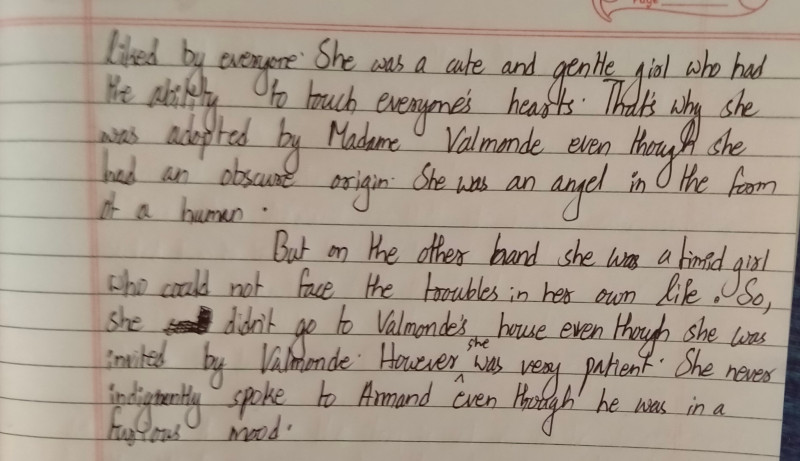 Page
liked by everyone. She was a cute and gentle girl who had
the ability to touch everyone's hearts. That's why she
was adopted by Madame Valmonde even though she
had an obscure origin. She was an angel in the form
of a human.
But on the other hand she was a timid girl
who could not face the troubles in her own life. So,
she didn't go to Valmonde's house even though she was
invited by Valmonde. However she was very patient. She never
indignently spoke to Armand even though he was in a
furious mood.